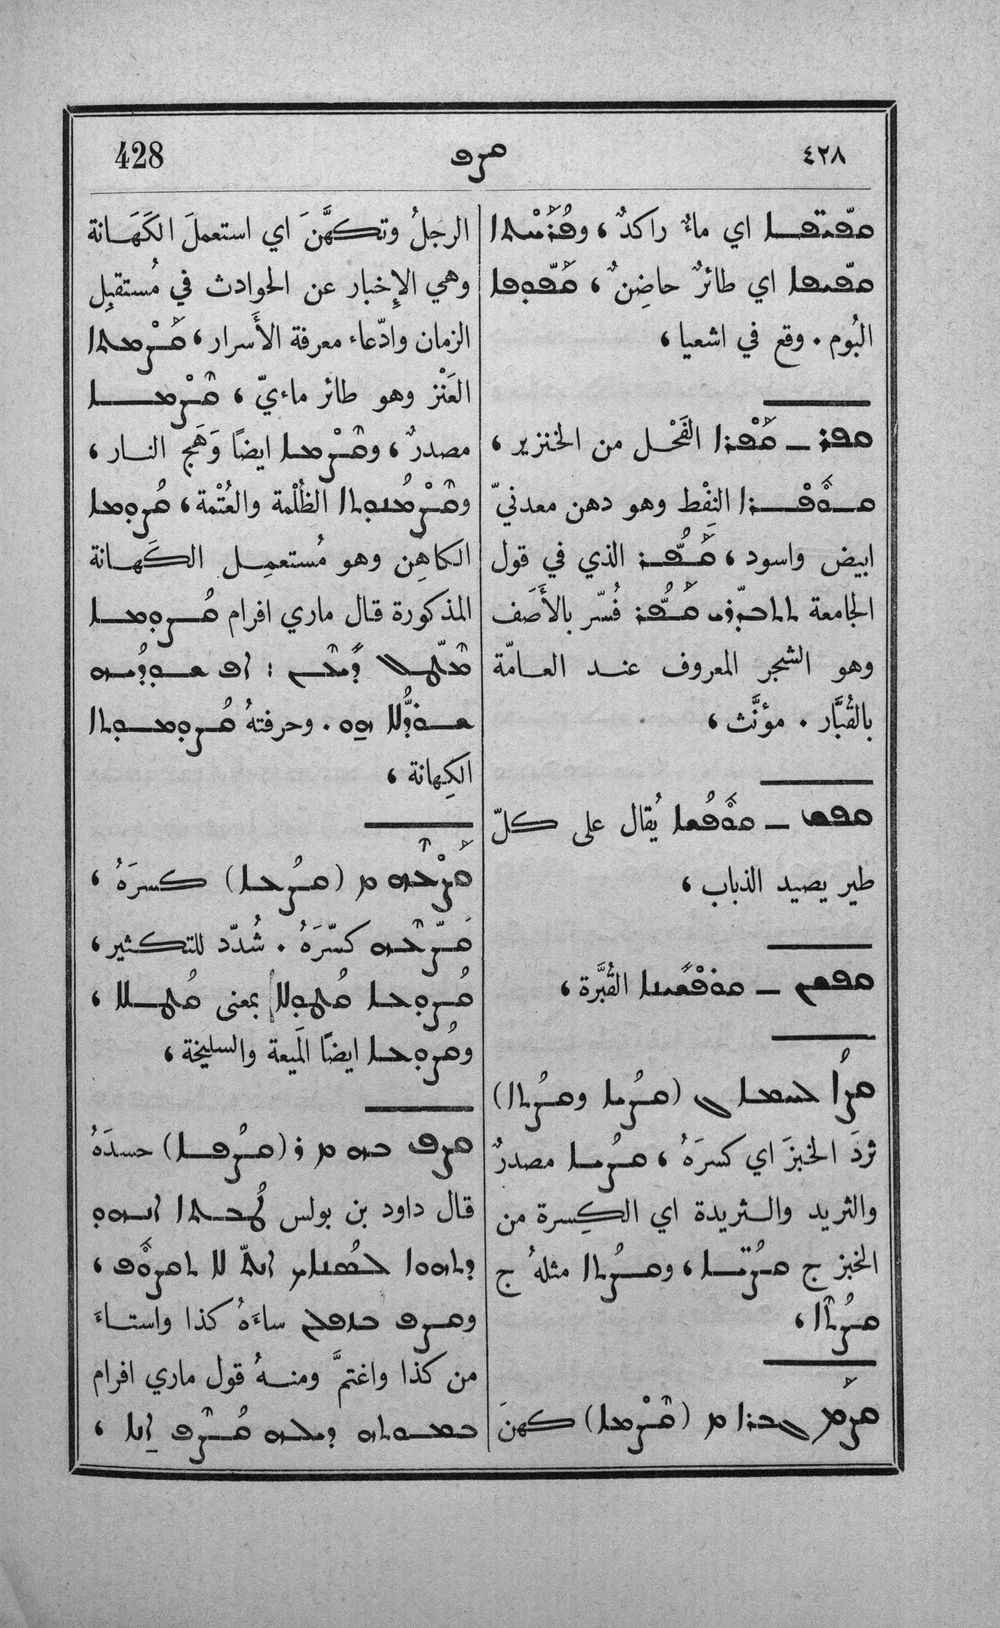 428 ܩܨܦ ٤٢٨
ܩܦܝܦܐ اي ماءٌ راكدٌ ، ܘܦܪܚܬܐ
ܩܦܝܦܐ اي طائرٌ حاضِنٌ ، ܩܦܘܦܐ
البُوم . وقع في اشعيا ،
ܩܦܪ ـ ܩܦܪܐ الفَحْل من الخنزير ،
ܩܘܦܪܐ النِفْط وهو دهن معدنيّ
ابيض واسود ، ܩܦܪ الذي في قول
الجامعة ܩܦܪ فُسّر بالأَصَف
وهو الشجر المعروف عند العامّة
بالقُبَّار . مؤنَّث ،
ܩܦܫ ـ ܩܘܦܫܐ يُقال على كلّ
طير يصيد الذباب ،
ـ القُبَّرة ،
ܩܨܐ ܠܚܡܐ ܢ (ܩܨܝܐ ܘܩܨܬܐ)
ثردَ الخبزَ اي كسرَهُ ، ܩܨܝܐ مصدرٌ
والثريد والثريدة اي الكِسرة من
الخبز ج ܩܨܝܐ ، ܘܩܨܬܐ مثلهُ ج
ܩܨܬܐ ،
ܩܨܡ ܓܒܪܐ ܡ (ܩܨܡܐ) كهنَ
الرجلُ وتكهَّنَ اي استعملَ الكَهَانة
وهي الإِخبار عن الحوادث في مُستقبِل
الزمان وادّعاء معرفة الأَسرار ، ܩܨܡܬܐ
العَنْز وهو طائر ماءيّ ، ܩܨܡܐ
مصدرٌ ، ܘܩܨܡܐ ايضًا وَهَج النار ،
ܘܩܨܡܢܘܬܐ الظُلْمة والعُتْمة ، ܩܨܘܡܐ
الكاهِن وهو مُستعمِل الكَهانة
المذكورة قال ماري افرام ܩܨܘܡܐ
وحرفتهُ ܩܨܘܡܘܬܐ
الكِهانة ،
ܩܨܒܗ ܡ (ܩܨܒܐ) كسرَهُ ،
ܩܨܒܗ كسّرَهُ . شُدّد للتكثير ،
ܩܨܘܒܐ ܩܛܘܠܐ بمعنى ܩܛܠܐ ،
ܘܩܨܘܒܐ ايضًا المَيعة والسليخة ،
ܩܨܦ ܒܗ ܡ ܪ (ܩܨܦܐ) حسدَهُ
قال داود بن بولس ܛܒܬܐ
ܕܬܗܘܐ ܐܢܬ ܠܐ ܬܩܨܘܦ ،
ܘܩܨܦ ساءَهُ كذا واستاءَ
من كذا واغتمَّ ومنهُ قول ماري افرام
ܩܨܦ ܐܢܐ ،